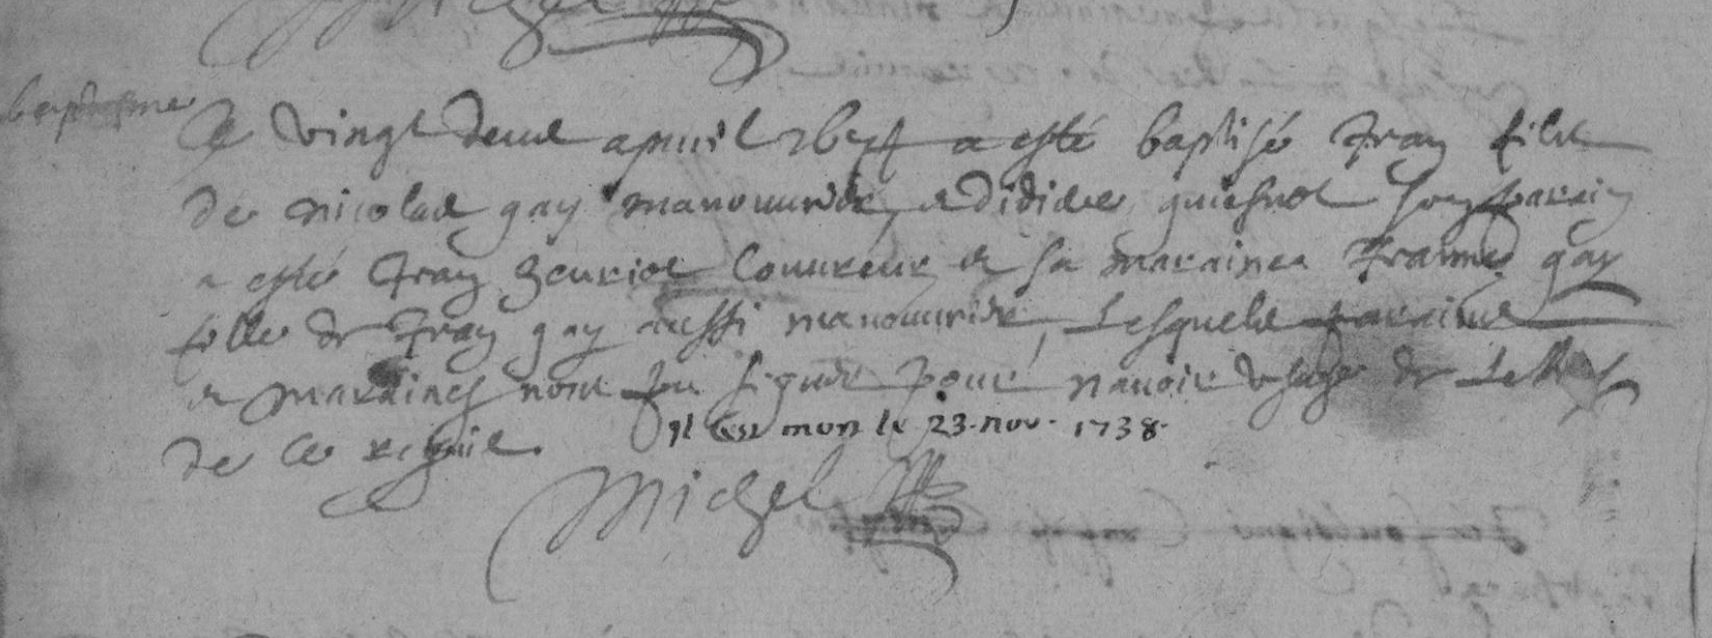 baptesme
Ce vingt deux apvril a esté baptisé Fran filz
de nicolas gay manouvrier, & didiere guiesnot son parain
a esté Fran henriot Couvreur & sa maraine gay
fille de Fran gay aussi manouvrier, Lesquels parain
& maraines nont signer pour navoir usage de Lettres
de ce requis. Il est mort le 23. nov. 1738.
Michel